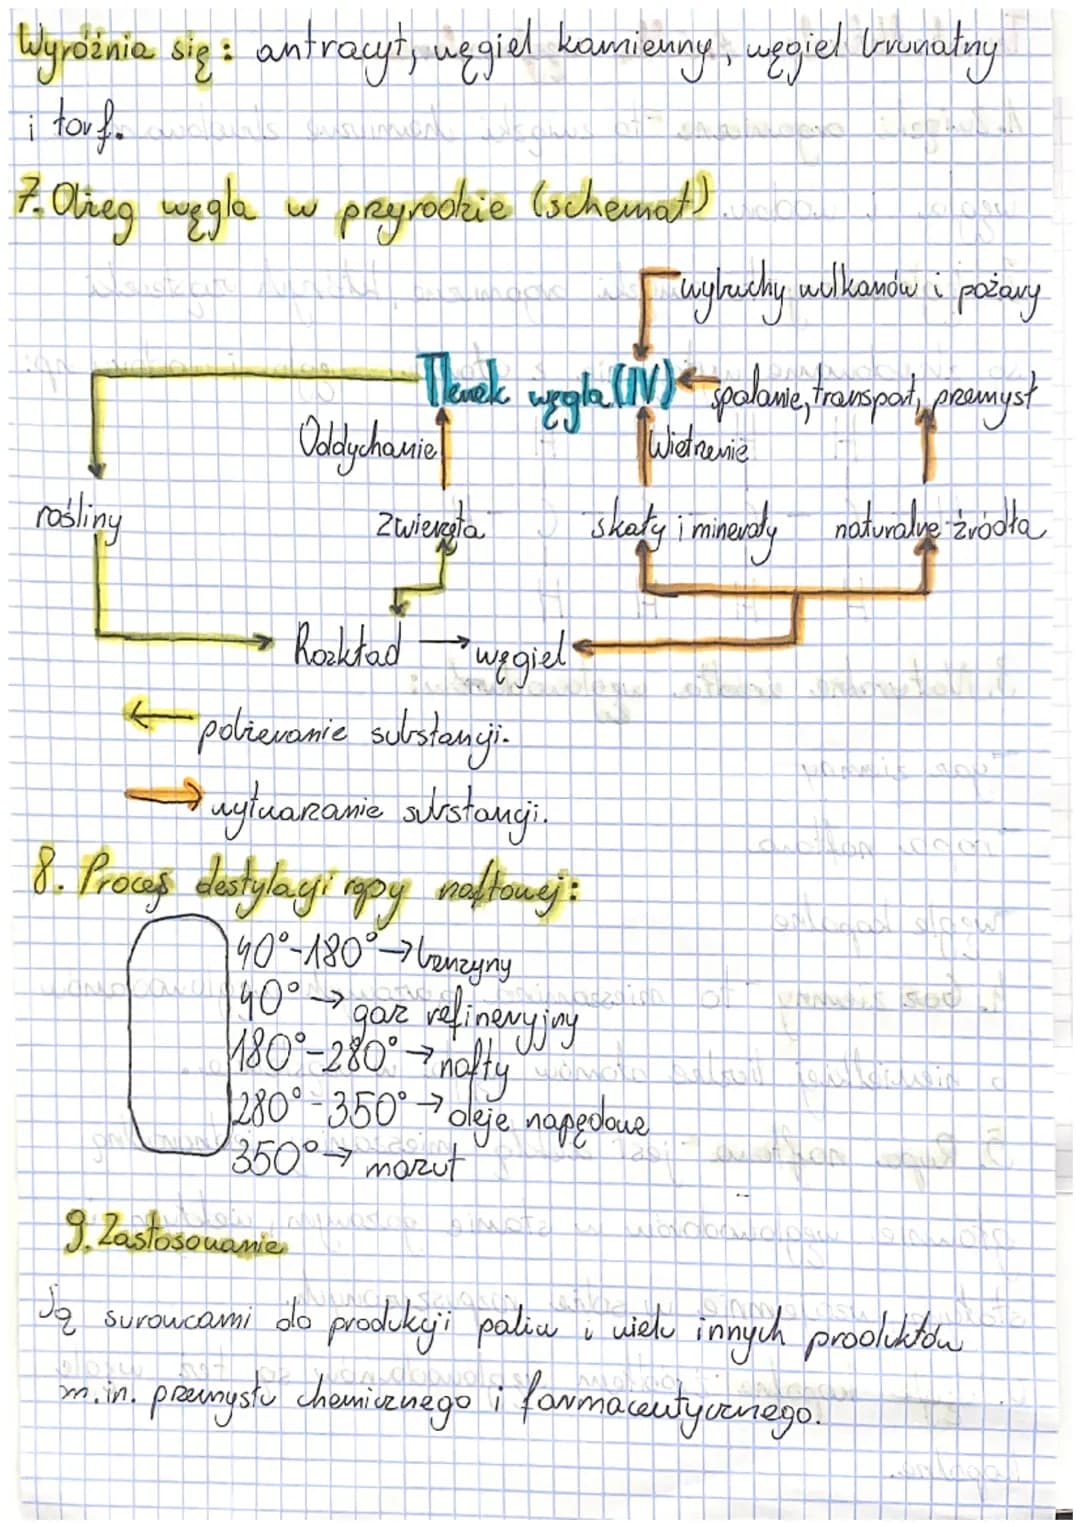 Wyróżnia się: antracyt, węgiel kamienny, węgiel brunatny
i torf.
7. Obieg węgla w przyrodzie (schemat)
wybuchy wulkanów i pożary
Tlenek węgla (IV)
spalanie, transport, przemysł
Oddychanie
Wietrzenie
rośliny
zwierzęta
skały i minerały
naturalne źródła
Rozkład → węgiel
← pobieranie substancji.
→ wytwarzanie substancji.
8. Proces destylacji ropy naftowej:
40°-180° → benzyny
40° → gaz refineryjny
180°-280° → nafty
280°-350° → oleje napędowe
350° → mazut
9. Zastosowanie
Są surowcami do produkcji paliw i wielu innych produktów
m.in. przemysłu chemicznego i farmaceutycznego.